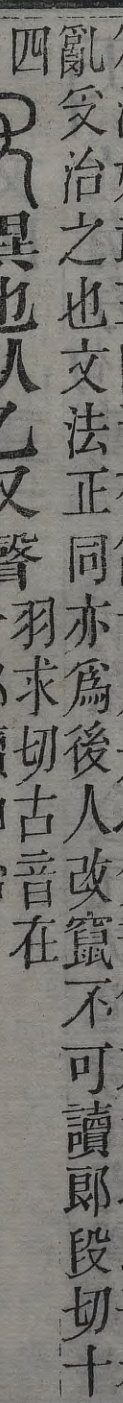 亂受治之也文法正同亦爲後人改竄不可讀郎段切十
四尤異也从乙又聲羽求切古音在